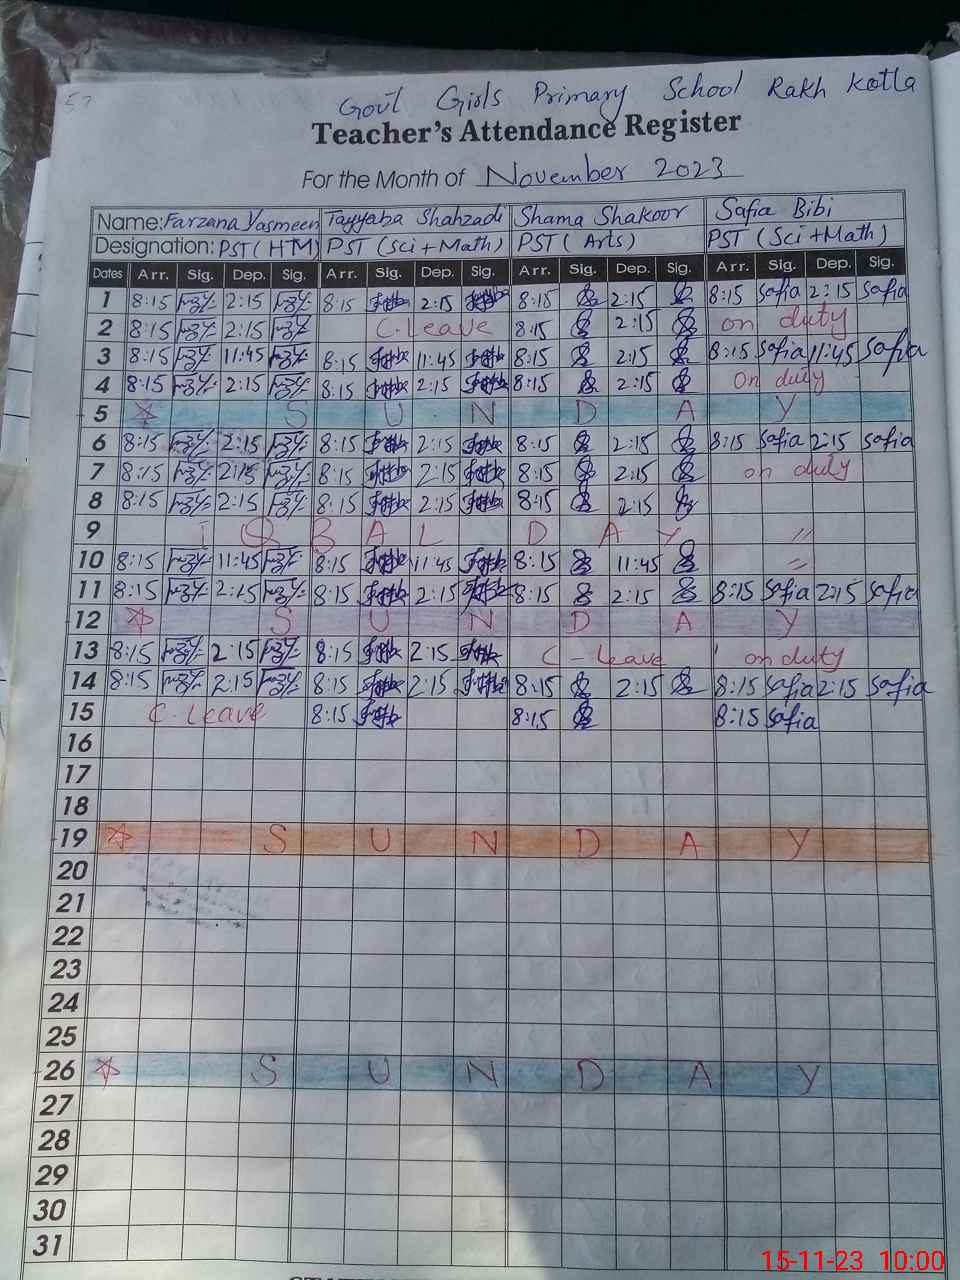 Govt Girls Primary School Rakh Kotla
Teacher's Attendance Register
For the Month of November 2023
Name: Farzana Yasmeen Tayyaba Shahzadi Shama Shakoor Safia Bibi
Designation: PST (HTM) PST (Sci+Math) PST (Arts) PST (Sci+Math)
Dates Arr. Sig. Dep. Sig. Arr. Sig. Dep. Sig. Arr. Sig. Dep. Sig. Arr. Sig. Dep. Sig.
1 8:15 2:15 8:15 2:15 8:15 2:15 8:15 Safia 2:15 Safia
2 8:15 2:15 C-Leave 8:15 2:15 on duty
3 8:15 11:45 8:15 11:45 8:15 2:15 8:15 Safia 11:45 Safia
4 8:15 2:15 8:15 2:15 8:15 2:15 On duty
5 S U N D A Y
6 8:15 2:15 8:15 2:15 8:15 2:15 8:15 Safia 2:15 Safia
7 8:15 2:15 8:15 2:15 8:15 2:15 on duty
8 8:15 2:15 8:15 2:15 8:15 2:15
9 I Q B A L D A Y "
10 8:15 11:45 8:15 11:45 8:15 11:45 "
11 8:15 2:15 8:15 2:15 8:15 2:15 8:15 Safia 2:15 Safia
12 S U N D A Y
13 8:15 2:15 8:15 2:15 C-Leave on duty
14 8:15 2:15 8:15 2:15 8:15 2:15 8:15 Safia 2:15 Safia
15 C-Leave 8:15 8:15 8:15 Safia
16
17
18
19 S U N D A Y
20
21
22
23
24
25
26 S U N D A Y
27
28
29
30
31
15-11-23 10:00